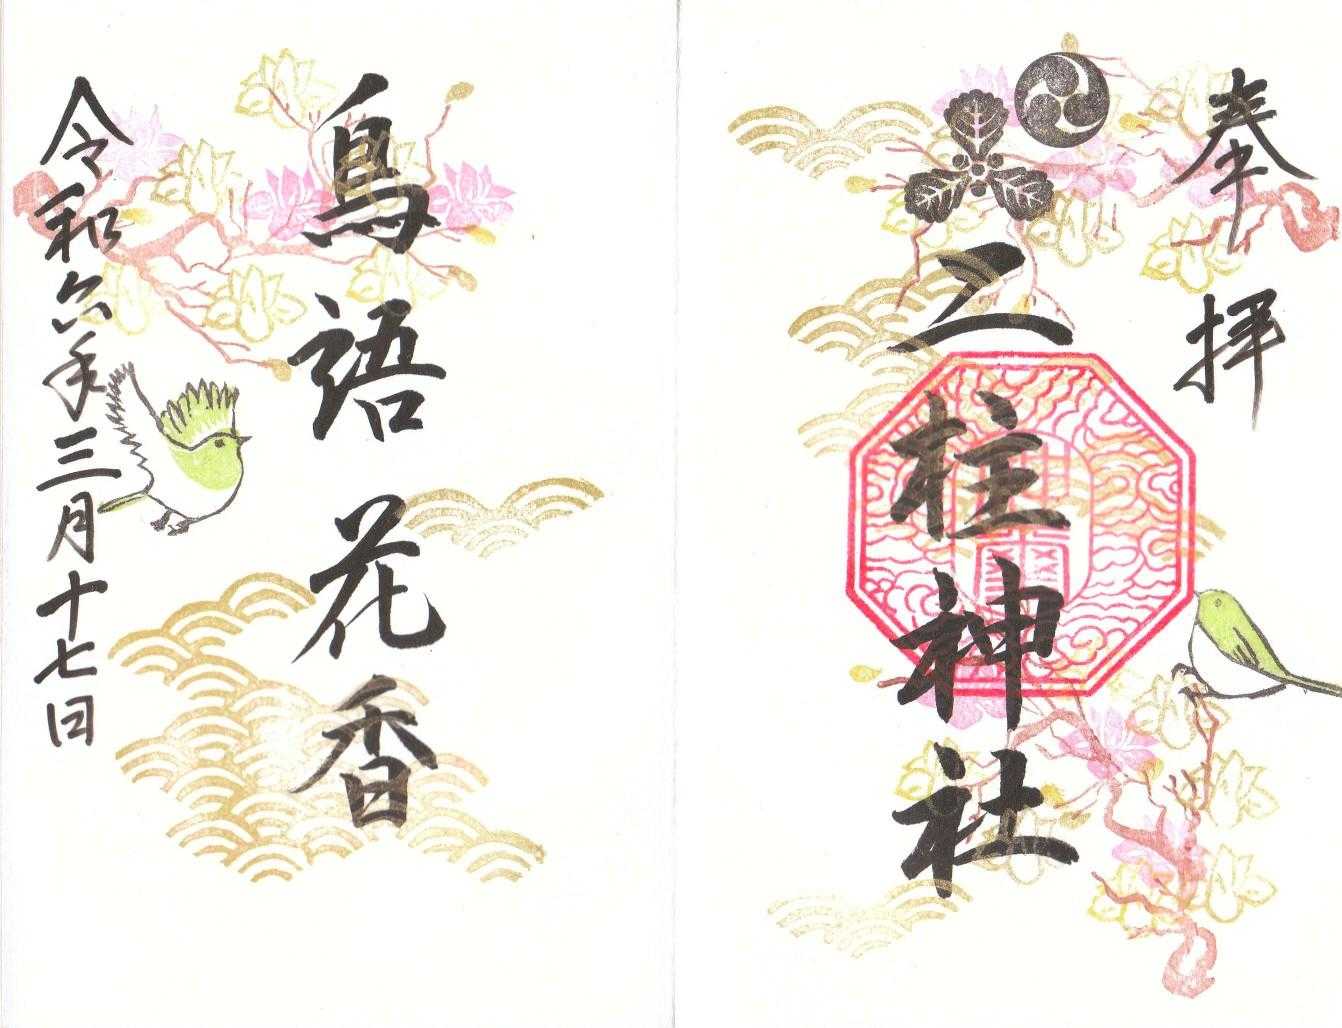 奉拝
二柱神社
鳥語花香
令和六年三月十七日